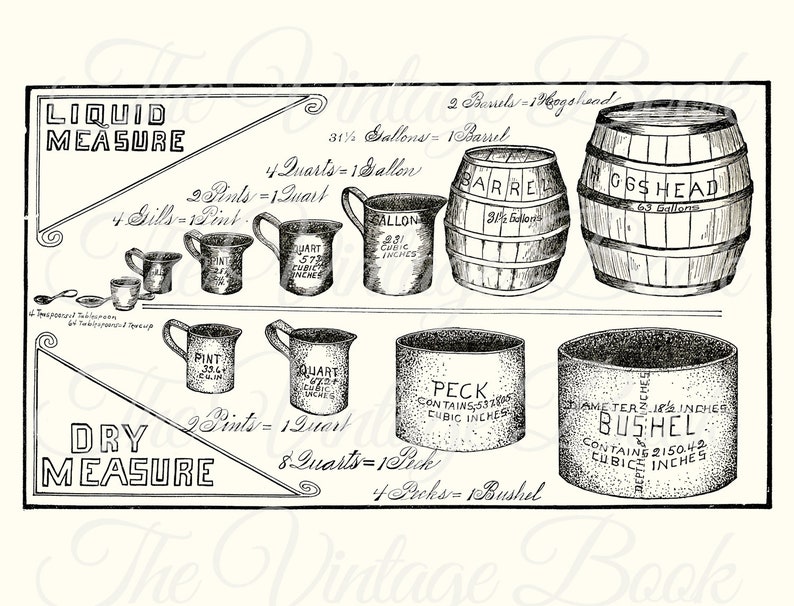 The Vintage Book
LIQUID
MEASURE
2 Barrels = 1 Hogshead
31½ Gallons = 1 Barrel
4 Quarts = 1 Gallon
2 Pints = 1 Quart
4 Gills = 1 Pint.
PINT
QUART
57¾
CUBIC
INCHES
GALLON
231
CUBIC
INCHES
BARREL
31½ Gallons
HOGSHEAD
63 Gallons
4 Teaspoons=1 Tablespoon
64 Tablespoons=1 Teacup
The Vintage Book
DRY
MEASURE
PINT
33.6+
CU.IN.
QUART
67.2+
CUBIC
INCHES
PECK
CONTAINS 537.605
CUBIC INCHES
DIAMETER 18½ INCHES
BUSHEL
CONTAINS 2150.42
CUBIC INCHES
DEPTH 8 INCHES
2 Pints = 1 Quart
8 Quarts = 1 Peck
4 Pecks = 1 Bushel
The Vintage Book